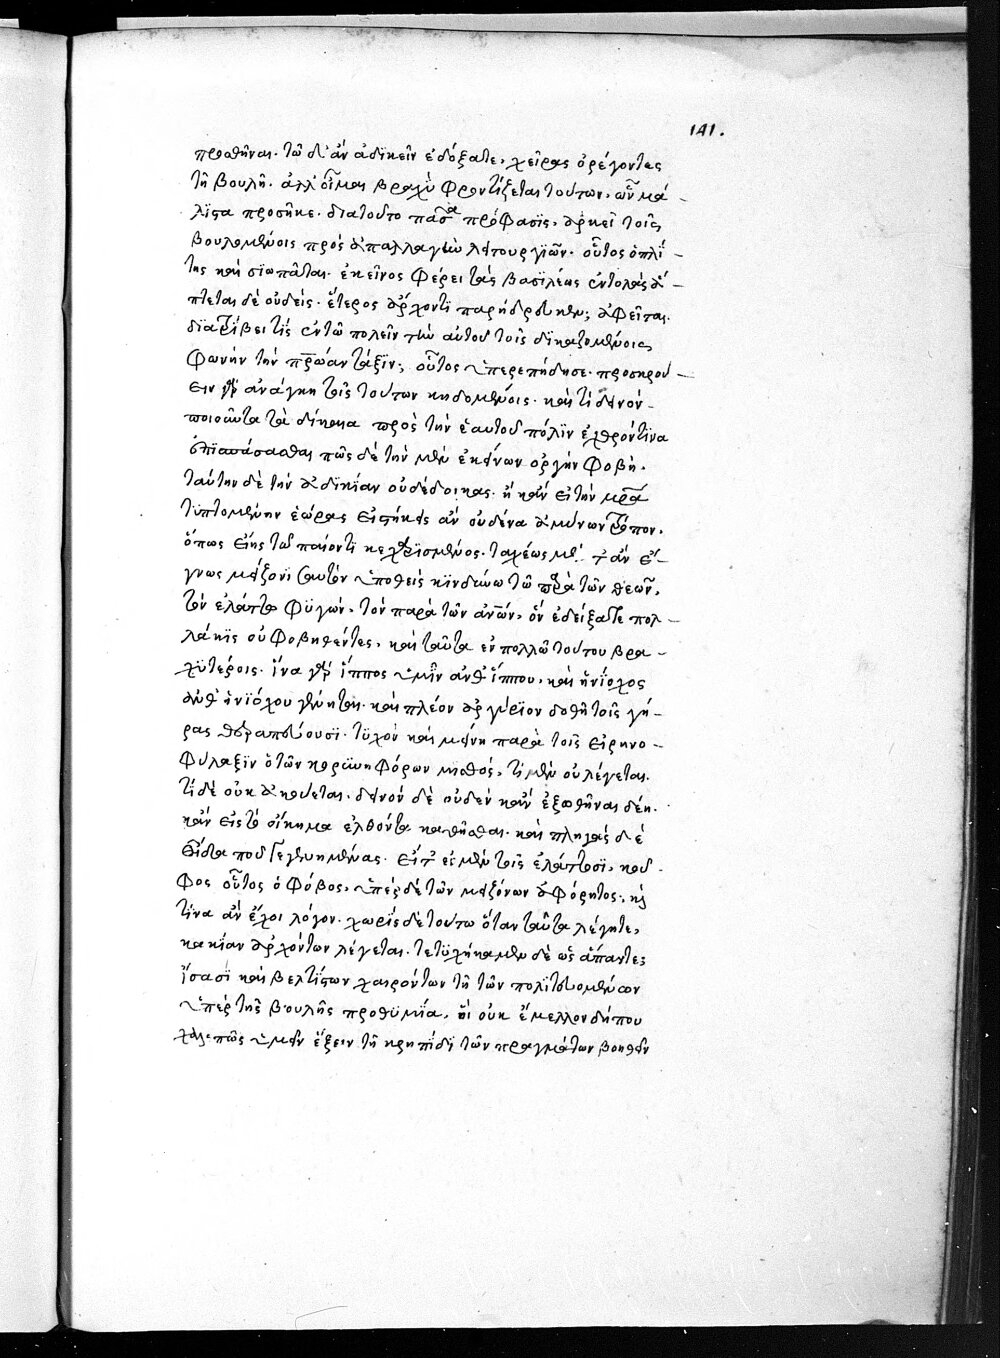 141.
προθῆναι. τῶ δ' ἂν ἀδϊκεῖν ἐδόξατε, χεῖρας ὀρέγοντες
τῆ βουλῆ. ἀλλ' οἶμαι βραχὺ φροντίζεται τούτων, ὧν μά-
λϊστα προσῆκε. διατοῦτο πᾶσα πρόφασϊς, ἀρκεῖ τοῖς
βουλομένοις πρὸς ἀπαλλαγὴν λειτουργϊῶν. οὗτος ὁπλί-
της καὶ σϊωπᾶται. ἐκεῖνος φέρει τὰς βασϊλέως ἐντολὰς ἅ-
πτεται δὲ οὐδείς. ἕτερος ἄρχοντϊ παρήδρευκεν; ἀφεῖται.
δϊατρίβει τίς ἐντῶ πωλεῖν τὴν αὑτοῦ τοῖς δϊκαζομένοις
φωνὴν τὴν πρώαν τάξϊν; οὗτος ὑπερεπήδησε. προσκρού-
ειν γὰρ ἀνάγκη τοῖς τούτων κηδομένοις. καὶ τί δεινόν
ποιοῦντα τὰ δίκαια πρὸς τὴν ἑαυτοῦ πόλϊν ἐχθρόν τϊνα
ἐπϊσπάσασθαι πῶς δὲ τὴν μὲν ἐκείνων ὀργὴν φοβῆ.
ταύτην δὲ τὴν ἀδϊκίαν οὐ δέδοικας. ἢ κἂν εἰ τὴν μητέρα
τϋπτομένην ἑώρας εἱστήκεις ἂν οὐδένα ἀμύνων τρόπον,
ὅπως εἴης τῶ παίοντϊ κεχαρϊσμένος. ταχέως μὲν τ' ἂν ἔ-
γνως μείζονϊ σαυτὸν ὑποθεὶς κϊνδύνω τῶ παρὰ τῶν θεῶν,
τὸν ἐλάττω φϋγών, τὸν παρὰ τῶν ἀνῶν, ὃν ἐδείξατε πολ-
λάκϊς οὐ φοβηθέντες, καὶ ταῦτα ἐν πολλῶ τούτου βρα-
χϋτέροις. ἵνα γὰρ ἵππος ὑμῖν ἀνθ' ἵππου, καὶ ἡνίοχος
ἀνθ' ἡνϊόχου γένηται. καὶ πλέον ἀργύρϊον δοθῆ τοῖς γή-
ρας θεραπεύουσϊ. τϋχὸν καὶ μείνη παρὰ τοῖς εἰρηνο-
φύλαξϊν ὁ τῶν κορϋνηφόρων μϊσθός, τί μὲν οὐ λέγεται.
τί δὲ οὐκ ἀκούεται. δεινὸν δὲ οὐδὲν κἂν ἐξωθῆναι δέη.
κἂν εἰς τὸ οἴκημα ἐλθόντα καθῆσθαι. καὶ πληγὰς δὲ
οἶδα που γεγενημένας. εἶτ' εἰ μὲν τοῖς ἐλάττοσϊ, κοῦ-
φος οὗτος ὁ φόβος, ὑπὲρ δὲ τῶν μειζόνων ἀφόρητος, καὶ
τίνα ἂν ἔχοι λόγον. χωρὶς δὲ τούτω ὅταν ταῦτα λέγητε,
κακίαν ἀρχόντων λέγεται. τετϋχήκαμεν δὲ ὡς ἅπαντες
ἴσασϊ καὶ βελτίστων χαιρόντων τῆ τῶν πολϊτευομένων
ὑπὲρ τῆς βουλῆς προθϋμία, οἳ οὐκ ἔμελλον δήπου
χαλεπῶς ὑμῖν ἕξειν τῆ κρηπῖδϊ τῶν πραγμάτων βοηθεῖν